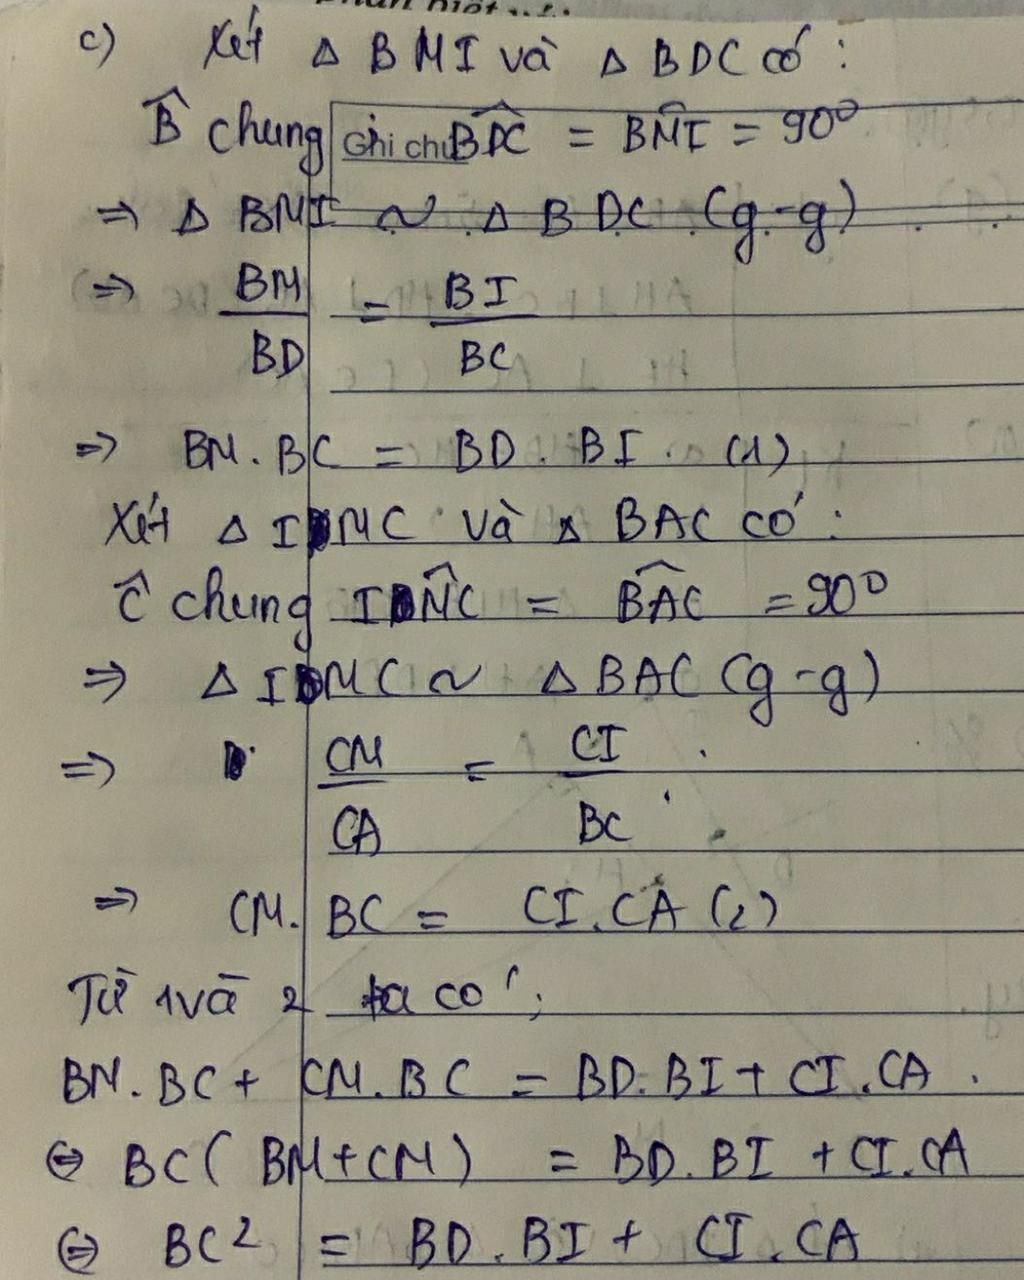 c) Xét Δ BMI và Δ BDC có:
B̂ chung Ghi chú BDC = BMI = 90°
⇒ Δ BMI ~ Δ BDC (g-g)
⇒ BM/BD = BI/BC
⇒ BM.BC = BD.BI. (1)
Xét Δ IMC và Δ BAC có:
Ĉ chung IMC = BAC = 90°
⇒ Δ IMC ~ Δ BAC (g-g)
⇒ CM/CA = CI/BC
⇒ CM.BC = CI.CA (2)
Từ 1 và 2 ta có;
BM.BC + CM.BC = BD.BI + CI.CA.
⇔ BC(BM+CM) = BD.BI + CI.CA
⇔ BC² = BD.BI + CI.CA